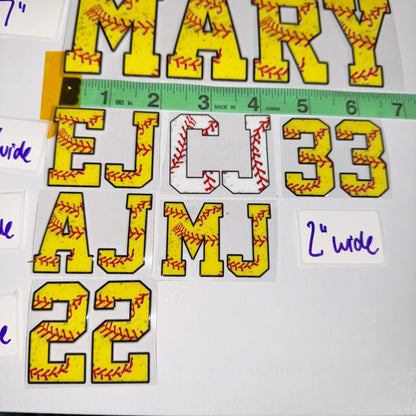 7"
MARY
1 60 IN 2 3 MADE IN 4 CHINA 5 6 7
EJ CJ 33
wide
AJ MJ
2" wide
22